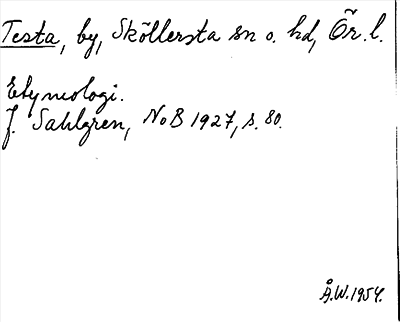 Testa, by, Sköllersta sn o. hd, Ör. l.
Etymologi.
J. Sahlgren, NoB 1927, s. 80.
Å.W. 1954.